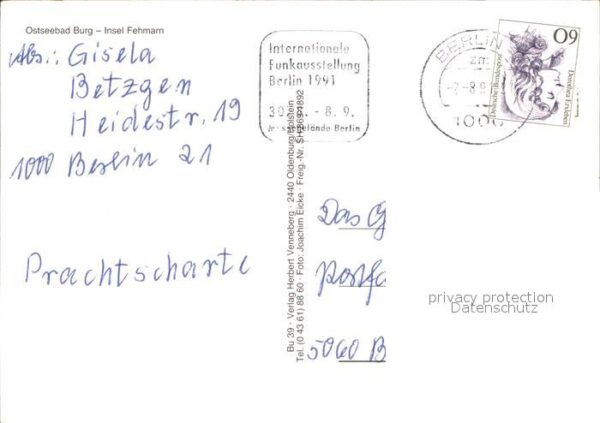 Ostseebad Burg – Insel Fehmarn
Abs.: Gisela
Betzgen
Heidestr. 19
1000 Berlin 21
Prachtscharte
Internationale
Funkausstellung
Berlin 1991
30. - 8. 9.
Berlin
BERLIN
1000
60
Deutsche Bundespost
Dorothea Erxleben
Bu 39 · Verlag Herbert Venneberg · 2440 Oldenburg/Holstein
Tel. (0 43 61) 88 60 · Foto: Joachim Eicke · Freig.-Nr. SH
Das G
Postfa
5060 B
privacy protection
Datenschutz